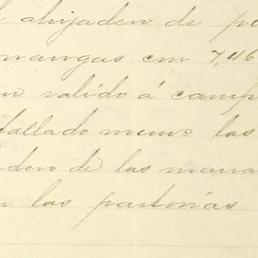 ahijaden de
mangas em 7,46
valido á camp
fallado menos las
dero de las mana
las partorias